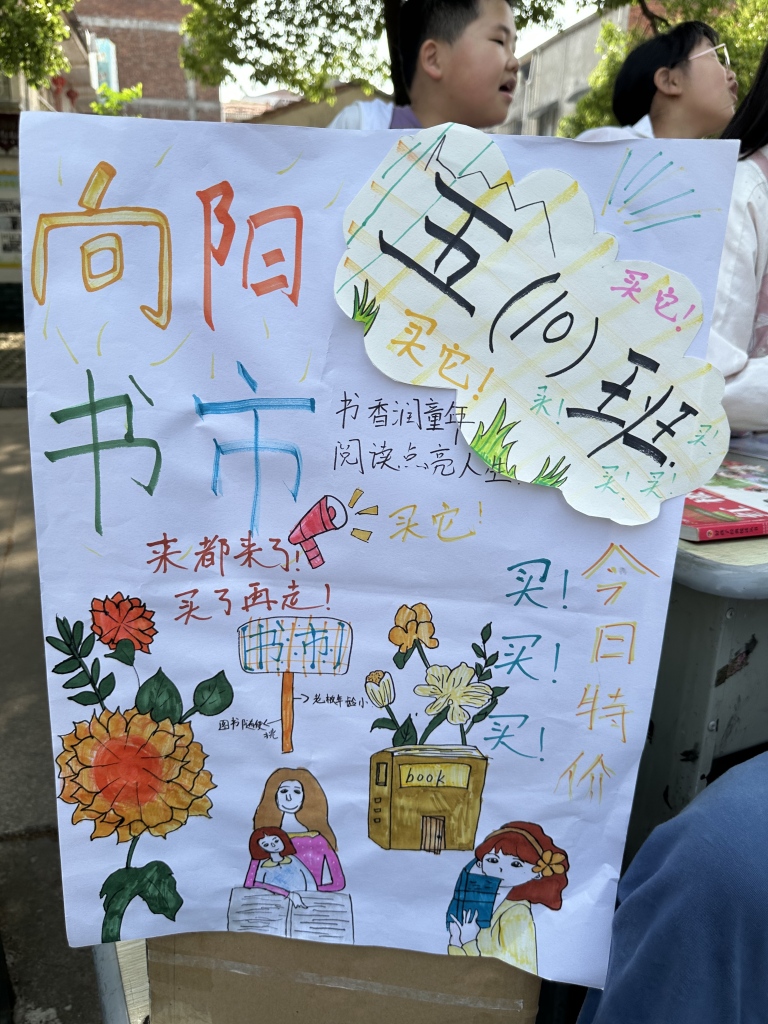 向阳
书市
五(10)班
买它!
买它!
买!
买!
买!
买!
书香润童年
阅读点亮人生.
买它!
来都来了!
买了再走!
今日特价
买!
买!
买!
书市
老板年龄小
book